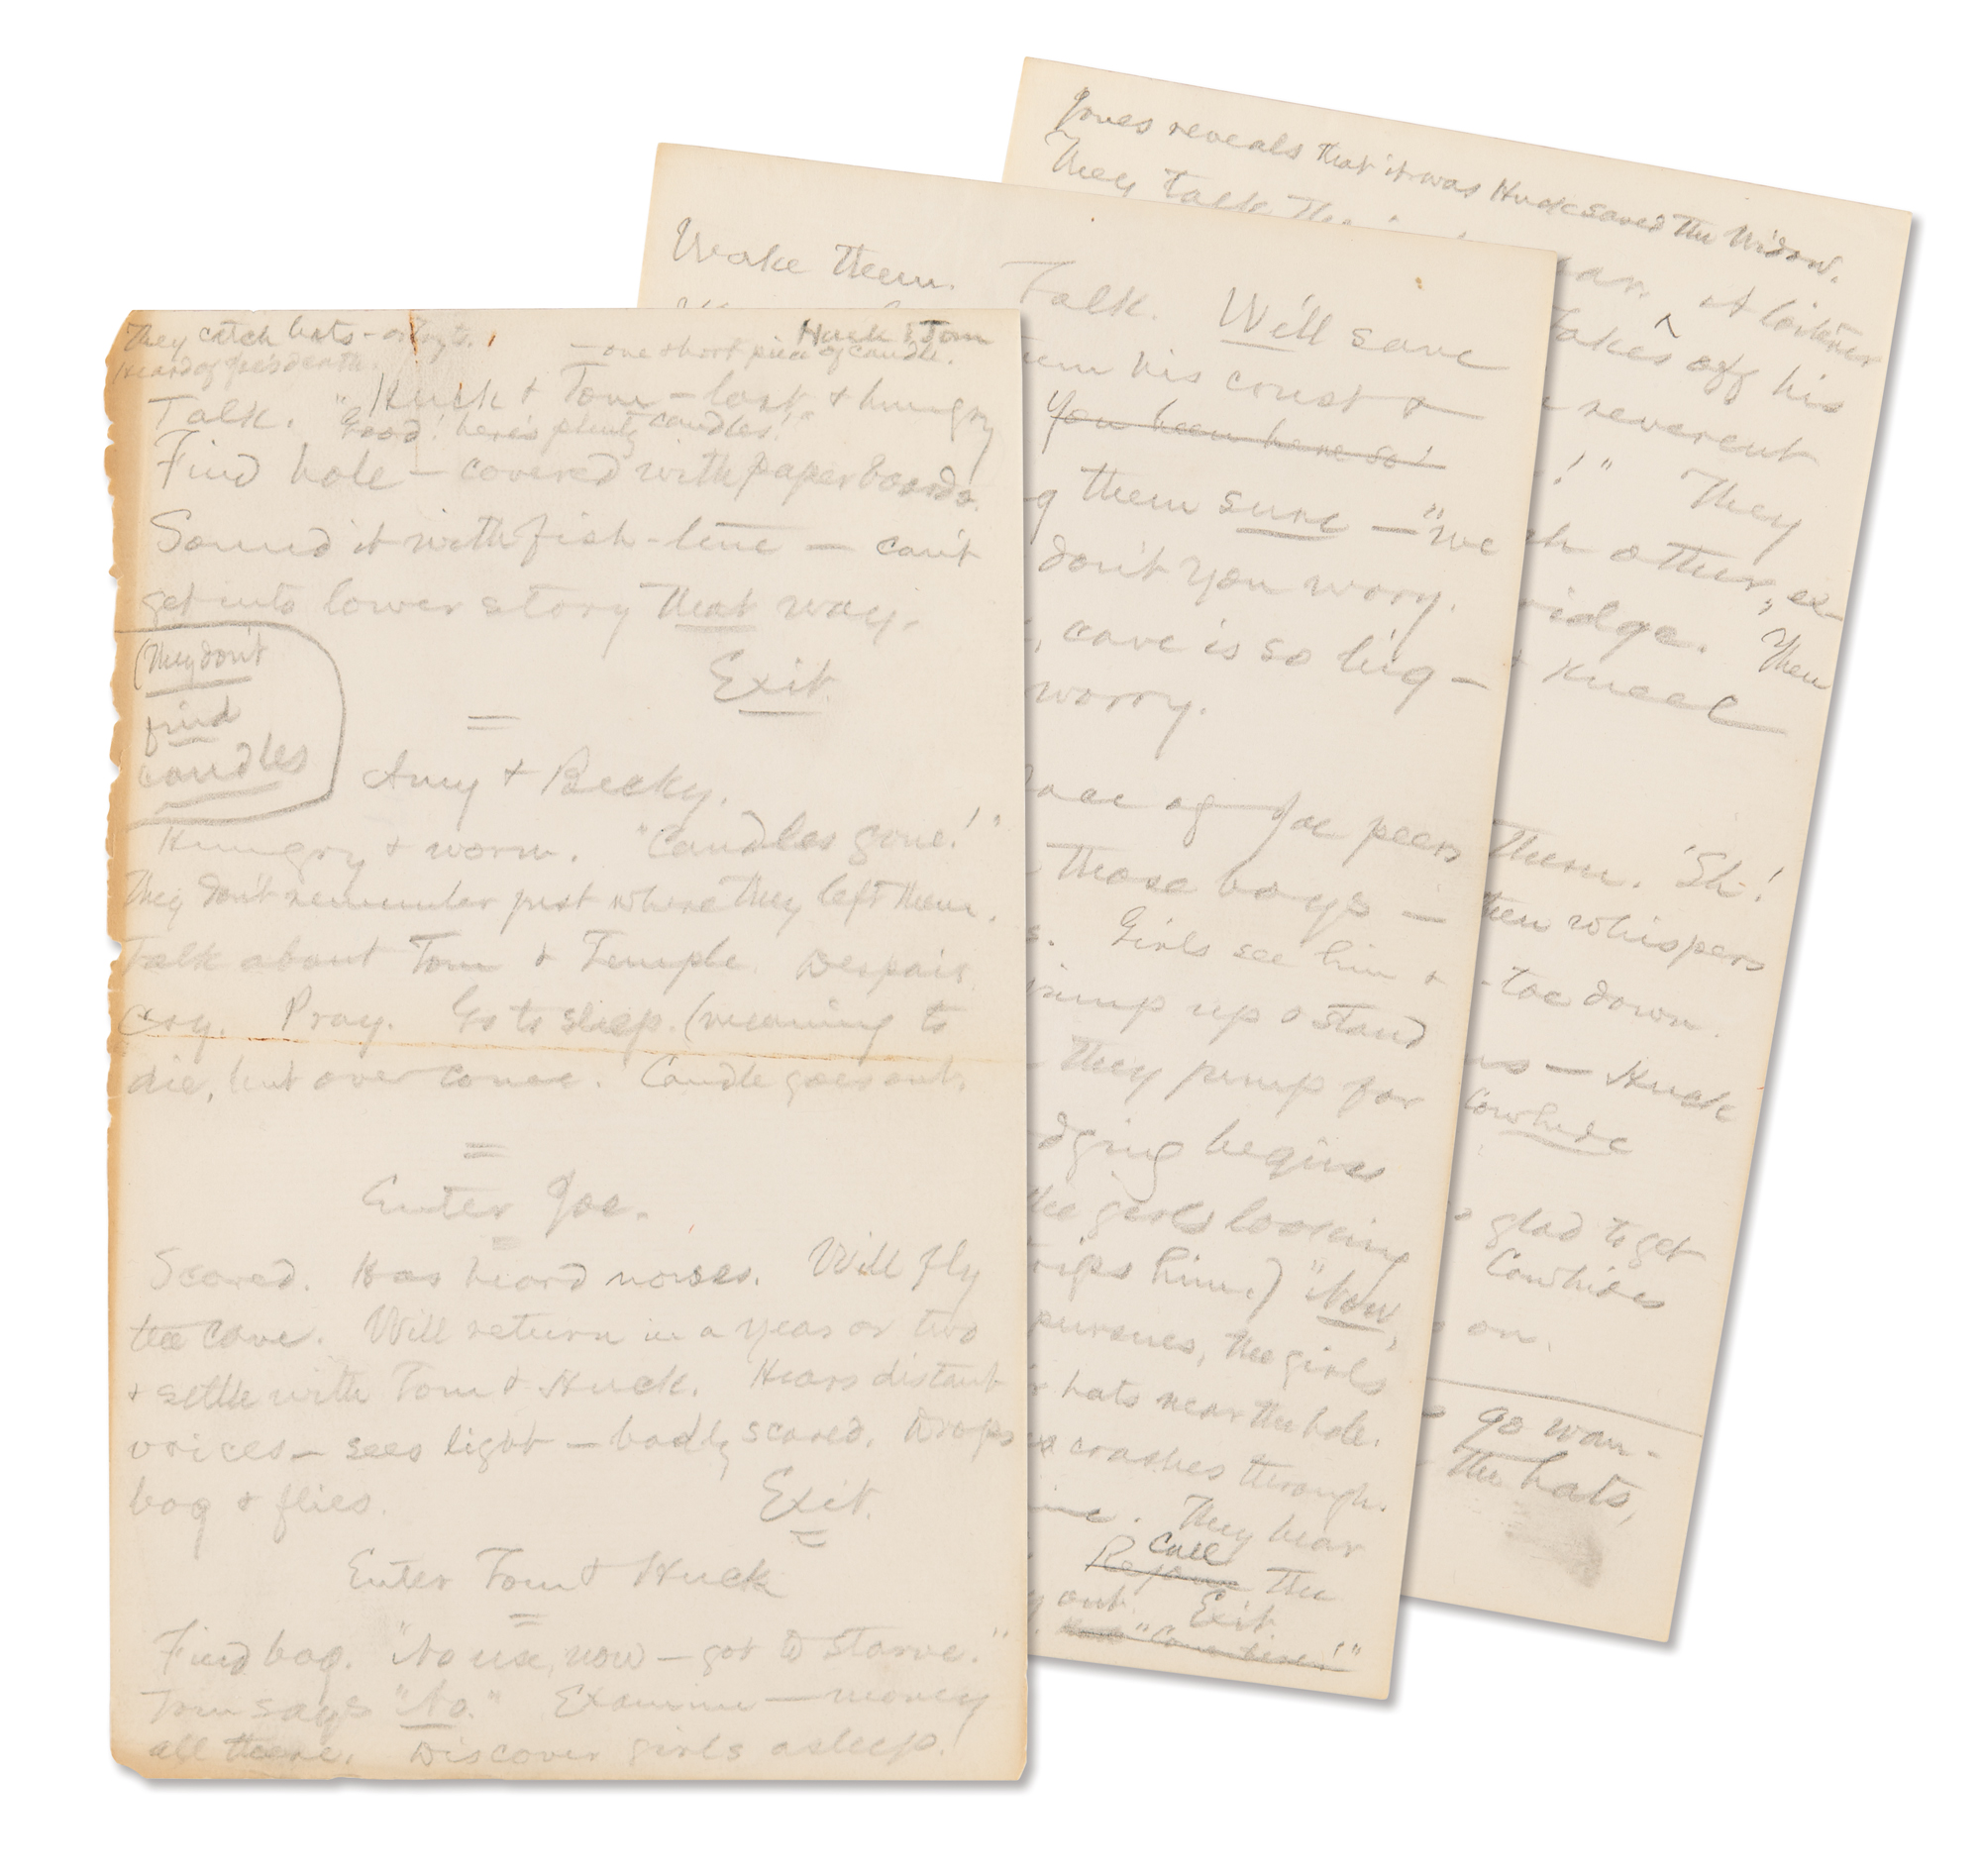 They catch bats –
Huck & Tom
Heard of Joe's death.
– one short piece of candle.
Huck & Tom – lost & hungry
Talk. "Good! here's plenty candles!"
Find hole – covered with paper boards.
Sound it with fish-line – can't
get into lower story that way.
Exit.
(They don't
find
candles
Amy & Becky.
Hungry & worn. "Candles gone!"
They don't remember just where they left them.
Talk about Tom & Temple. Despair.
Cry. Pray. Go to sleep. (meaning to
die, but overcome. Candle goes out.
Enter Joe.
Scared. Has heard noises. Will fly
the cave. Will return in a year or two
& settle with Tom & Huck. Hears distant
voices – sees light – badly scared. Drops
bag & flies.
Exit.
Enter Tom & Huck
Find bag. "No use, now – got to starve."
Tom says "No." Examine – money
all there. Discover girls asleep.
Wake them. Talk. Will save
his
You been here so
them sure – "we
don't you wory.
cave is so big –
worry.
of Joe peers
those boys –
Girls see him &
jump up & stand
they jump for
begins
the girls looking
him.) "Now,
pursues, the girls
hats near the hole.
crashes through.
They hear
Call
the
out. Exit.
Jones reveals that it was Huck saved the Widow.
They talk
A loiterer
takes off his
reverent
!" They
other,
Then
kneel
them. 'Sh!
then whispers
-toe down.
– Huck
Cowhide
glad to get
Cowhides
on.
go wan-
the hats,